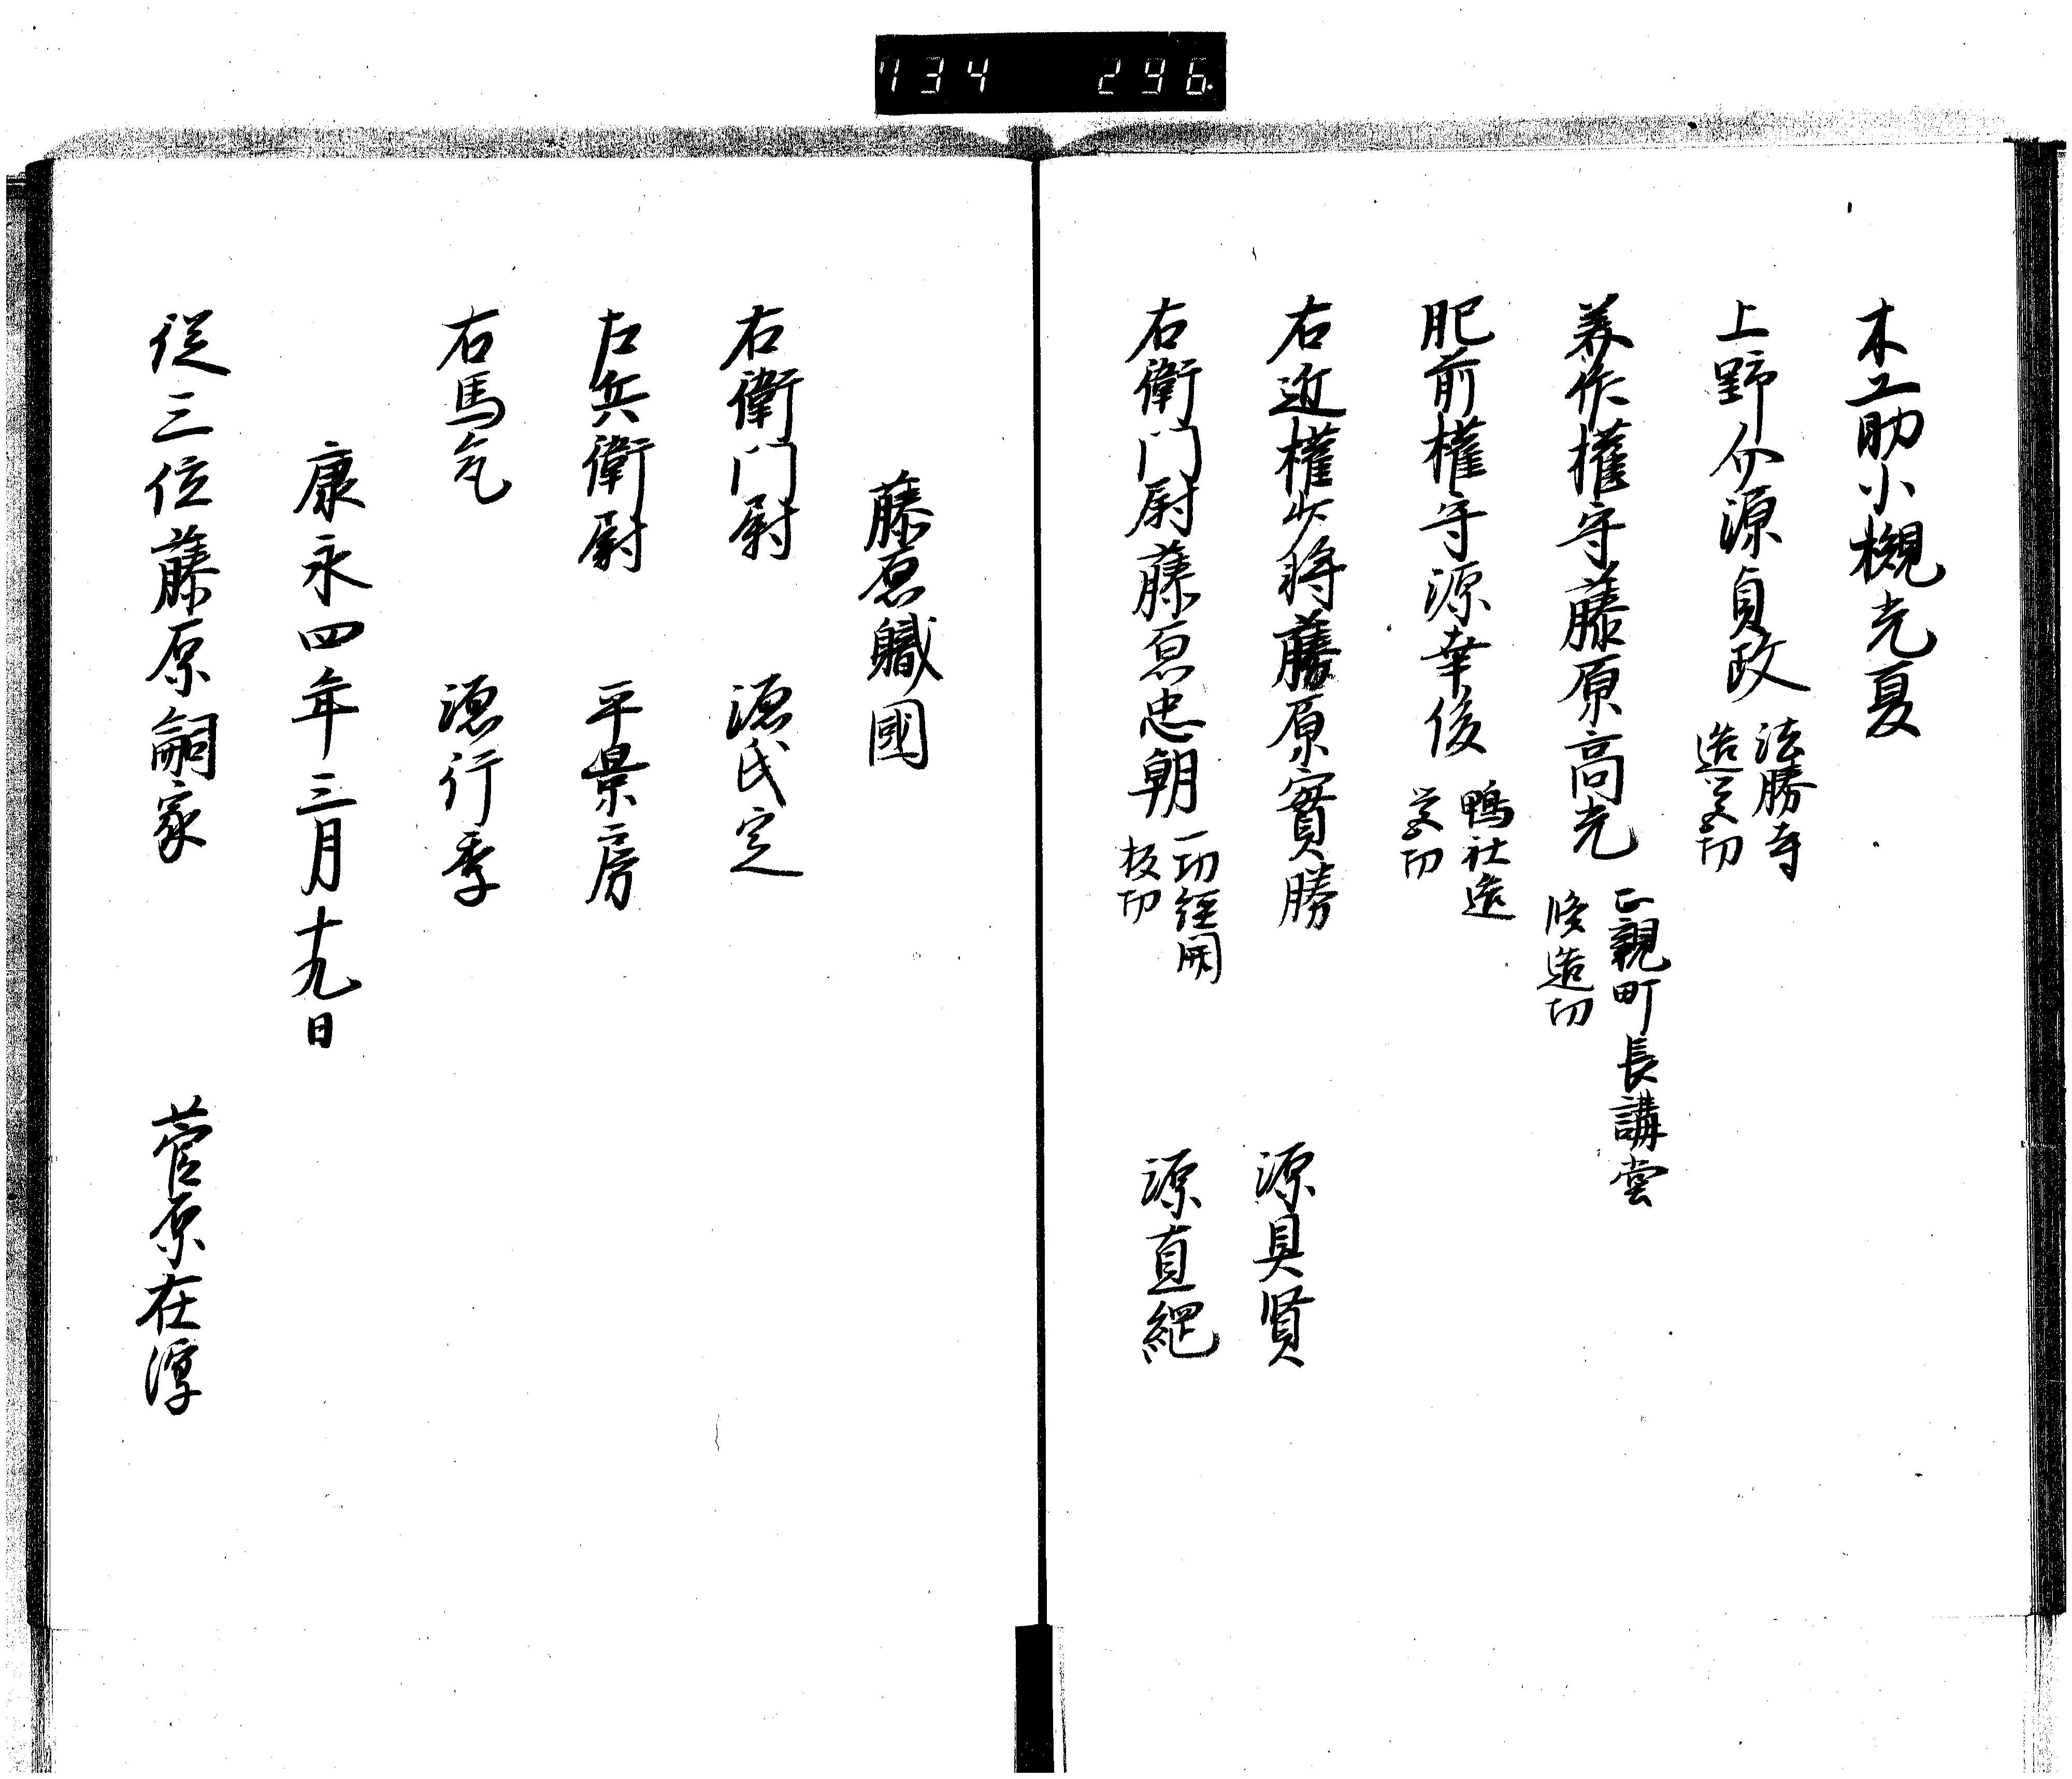 734 296
木工助小槻光夏
上野介源貞政 法勝寺
造営功
美作權守藤原高光 正親町長講堂
修造功
肥前權守源幸俊 鴨社造
営功
右近權少将藤原實勝 源具賢
右衛门尉藤原忠朝 一切經開
板功
源直綱
藤原職國
右衛门尉 源氏定
左兵衛尉 平景房
右馬允 源行季
康永四年三月十九日
従三位藤原嗣家 菅原在淳